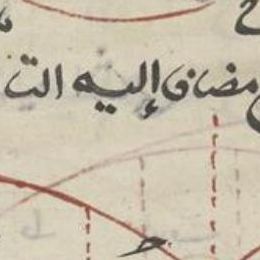 مضاف إليه الت
ح